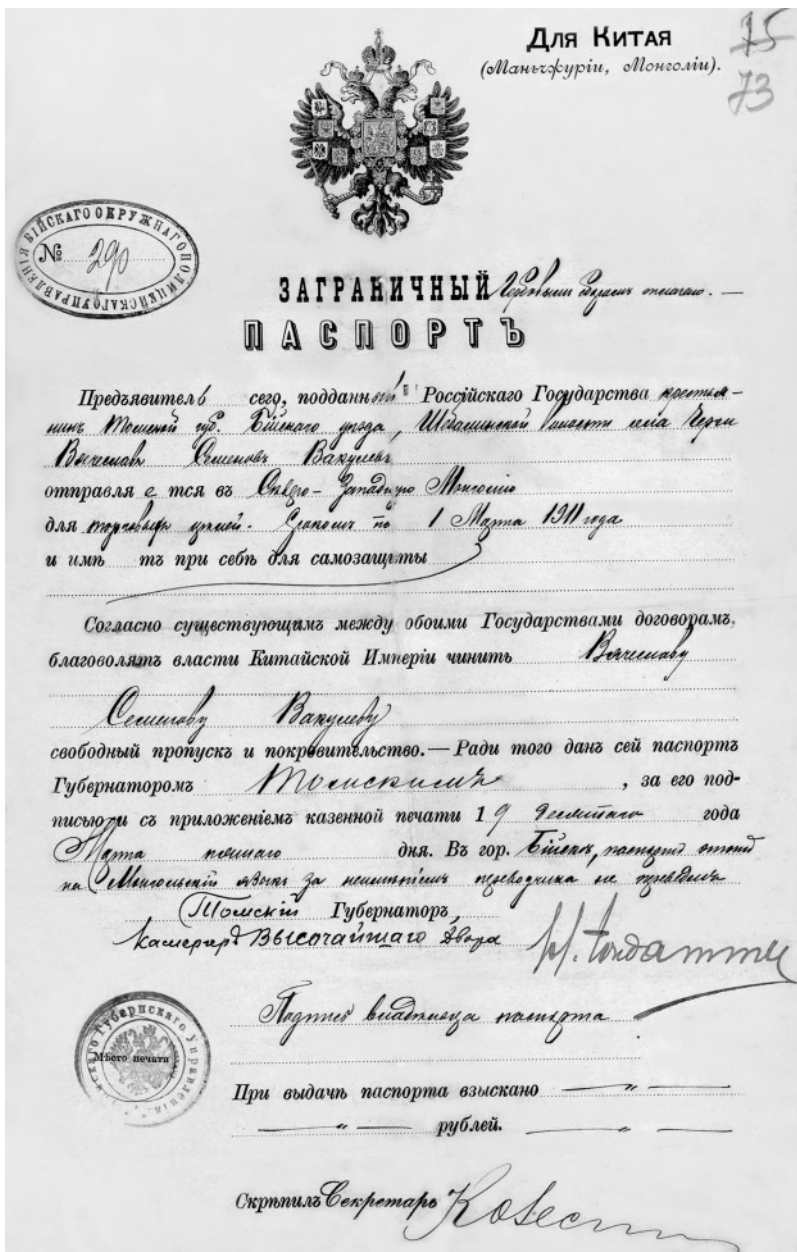 Для Китая
75
(Маньчжуріи, Монголіи).
73
БІЙСКАГО ОКРУЖНАГО ПОЛИЦЕЙСКАГО УПРАВЛЕНІЯ
№ 290
ЗАГРАНИЧНЫЙ Гербовымъ сборомъ оплачено. —
ПАСПОРТЪ
Предъявитель сего, подданный Россійскаго Государства крестья-
нинъ Томской губ. Бійскаго уезда, Шебалинской волости села Черги
Вячеславъ Семеновъ Вакулевъ
отправляется въ Сѣверо-Западную Монголію
для торговыхъ цѣлей. Срокомъ по 1 Марта 1911 года
и имѣ тъ при себѣ для самозащиты
Согласно существующимъ между обоими Государствами договорамъ,
благоволятъ власти Китайской Имперіи чинить Вячеславу
Семенову Вакулеву
свободный пропускъ и покровительство.— Ради того данъ сей паспортъ
Губернаторомъ Томскимъ, за его под-
писью и съ приложеніемъ казенной печати 19 десятаго года
Марта дня. Въ гор. Бійскѣ, паспортъ этотъ
на Монгольскій языкъ за неимѣніемъ переводчика не
Томскій Губернаторъ,
Камергеръ ВЫСОЧАЙШАГО Двора
Губернскаго Управленія
Мѣсто печати
Подпись владѣльца паспорта
При выдачѣ паспорта взыскано — „ —
— „ — рублей. — „ —
Скрѣпилъ Секретарь